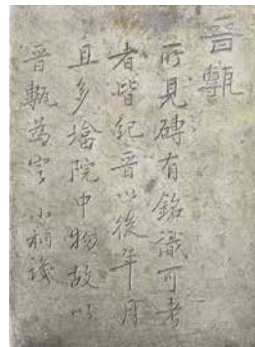 晉甎
所見磚有銘識可考
者皆紀晉以後年月
且多墖院中物故以
晉甎為室